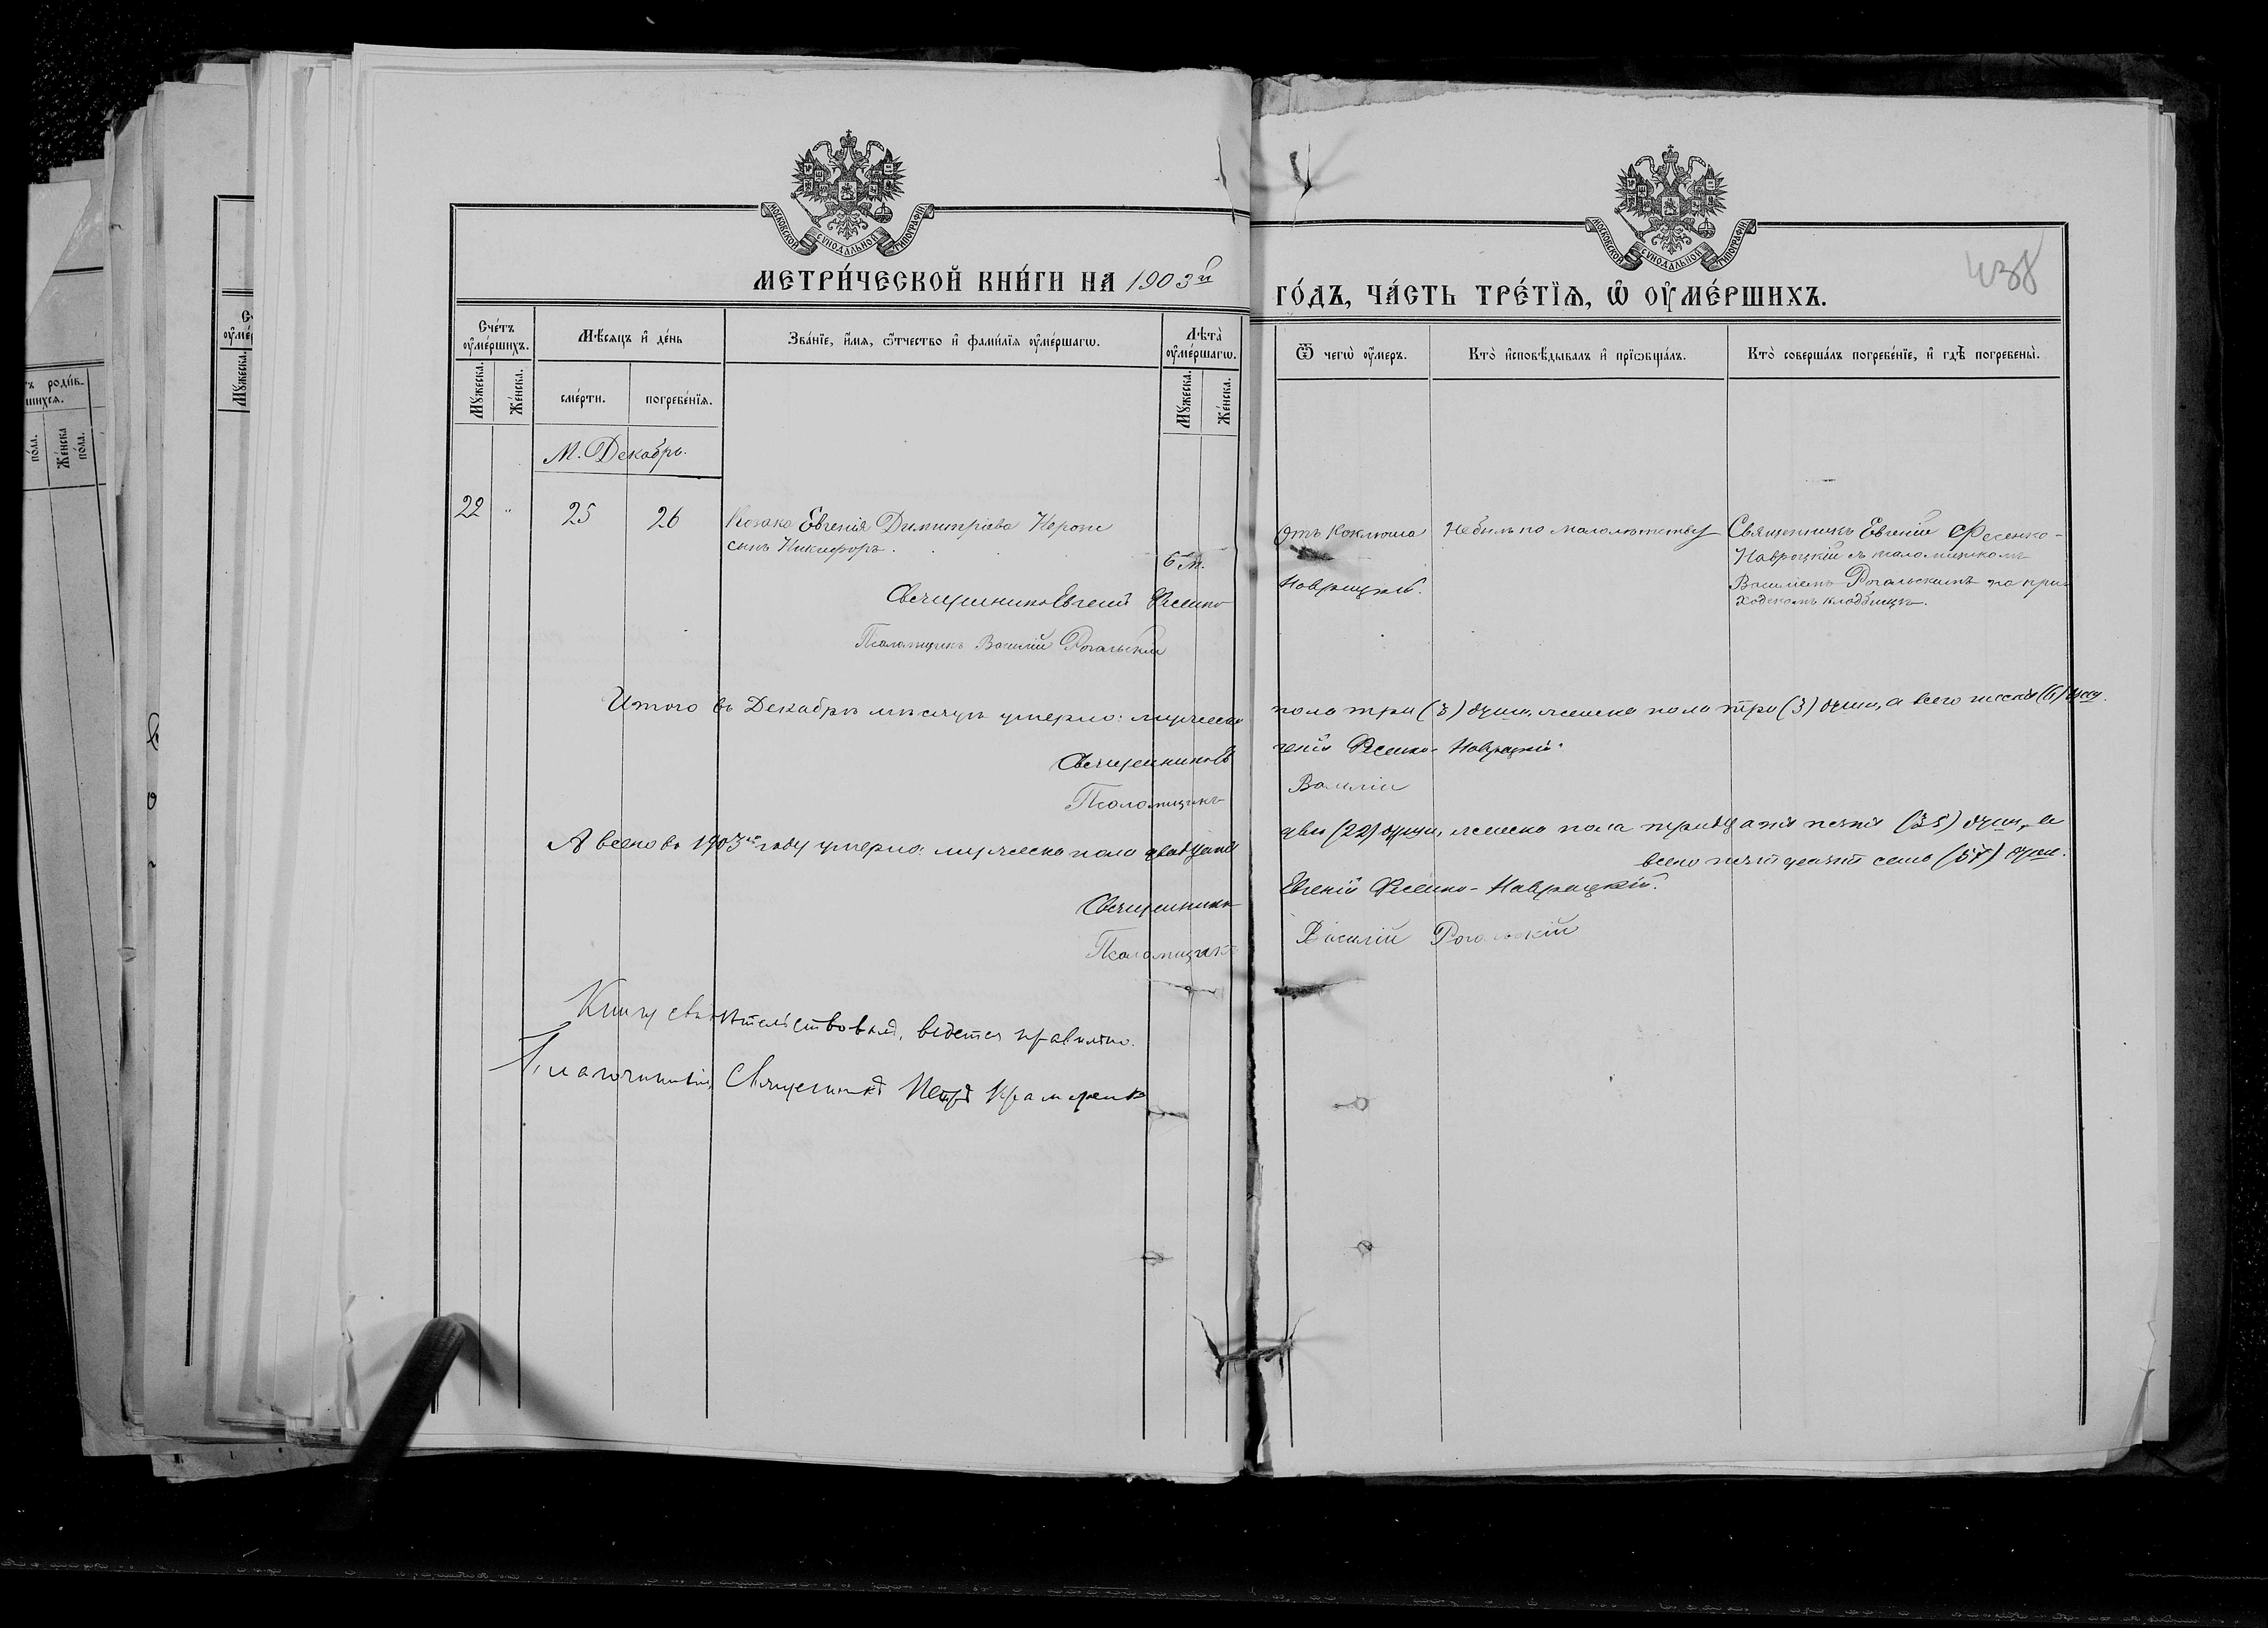 МОСКОВСКОЙ СѴНОДАЛЬНОЙ ТИПОГРАФІИ
МОСКОВСКОЙ СѴНОДАЛЬНОЙ ТИПОГРАФІИ
438
МЕТРИ́ЧЕСКОЙ КНИ́ГИ НА 1903й
ГО́ДЪ, ЧА́СТЬ ТРЕ́ТЇѦ, Ѡ҆ ОУ҆МЕ́РШИХЪ.
Сче́тъ оу҆ме́ршихъ.
Мꙋ́жеска.
Же́нска.
Мѣ́сѧцъ и҆ де́нь
сме́рти.
погребе́нїѧ.
Зва́нїе, и҆́мѧ, ѻ҆́тчество и҆ фами́лїѧ оу҆ме́ршагѡ.
Лѣ́та оу҆ме́ршагѡ.
Мꙋ́жеска.
Же́нска.
Ѿ чегѡ̀ оу҆́меръ.
Кто̀ и҆сповѣ́дывалъ и҆ прїѡбща́лъ.
Кто̀ соверша́лъ погребе́нїе, и҆ гдѣ̀ погребены̀.
М. Декабрь.
22 " 25 26 Козака Евгенія Димитріева
сынъ Никифоръ. 6 м.
Отъ Коклюша
Не былъ по малолѣтству
Священникъ Евгеній Фесенко-
Навроцкій съ псаломщикомъ
Василіемъ Рогальскимъ на при-
ходскомъ кладбищѣ.
Священникъ Евгеній Фесенко Навроцкій.
Псаломщикъ Василій Рогальскій
Итого въ Декабрѣ мѣсяцѣ умерло: мужеска пола три (3) души, женска пола три (3) души, а всего шесть (6) душ.
Священникъ Евгеній Фесенко-Навроцкій.
Псаломщикъ Василій
А всего въ 1903мъ году умерло: мужеска пола двадцать два (22) души, женска пола тридцать пять (35) душ, а
всего пятьдесятъ семь (57) душ.
Священникъ Евгеній Фесенко-Навроцкій.
Псаломщикъ Василій Рогальскій
Книгу свидѣтельствовалъ, ведется правильно.
Благочинный, Священникъ Петръ
ъ роди́в-
шихсѧ.
по́ла.
Же́нска по́ла.
Мꙋ́жеска.